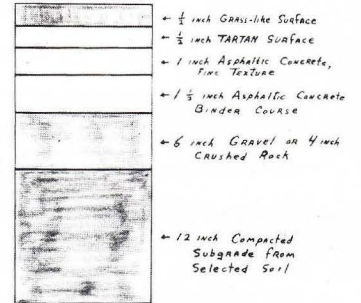 ← 1/2 inch Grass-like Surface
← 1/2 inch TARTAN Surface
← 1 inch Asphaltic Concrete,
Fine Texture
← 1 1/2 inch Asphaltic Concrete
Binder Course
← 6 inch Gravel or 4 inch
Crushed Rock
← 12 inch Compacted
Subgrade from
Selected Soil